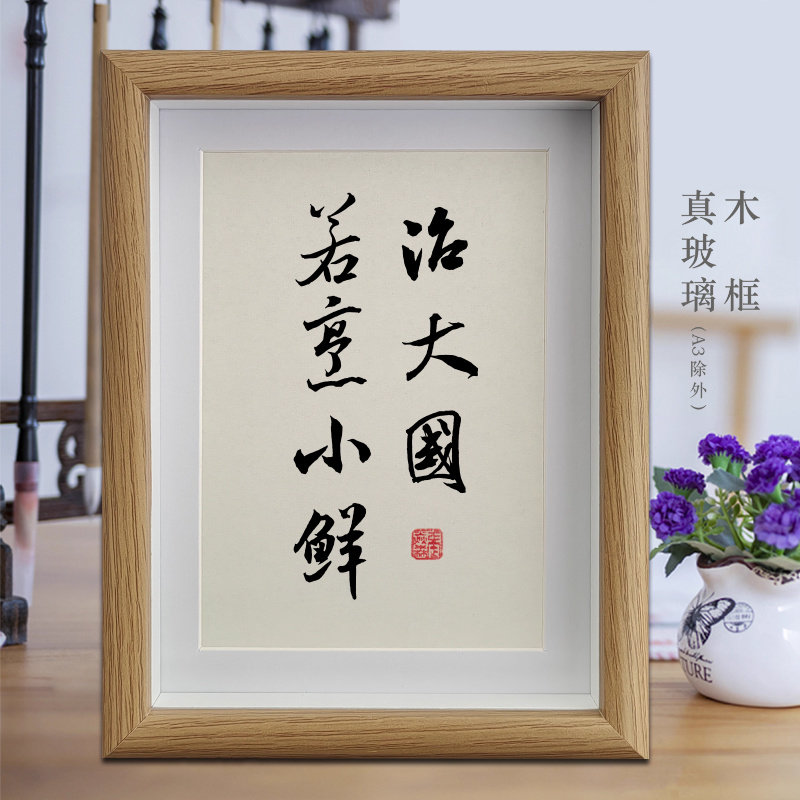 治大國
若烹小鮮
木框
真玻璃(A3除外)
TURE